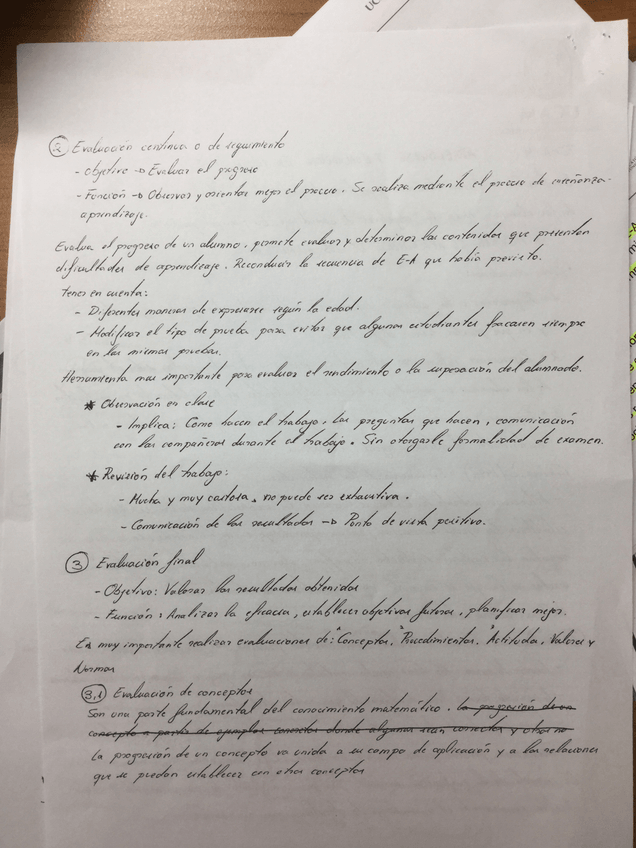 UC
② Evaluación continua o de seguimiento
- Objetivo → Evaluar el progreso
- Función → Observar y orientar mejor el proceso. Se realiza mediante el proceso de enseñanza-
aprendizaje.
Evalua el progreso de un alumno, permete evaluar y determinar los contenidos que presentan
dificultades de aprendizaje. Reconducir la secuencia de E-A que había previsto.
Tener en cuenta:
- Diferentes maneras de expresarse según la edad.
- Modificar el tipo de prueba para evitar que algunos estudiantes fracasen siempre
en las mismas pruebas.
Herramienta mas importante para evaluar el rendimiento o la superación del alumnado.
* Observación en clase
- Implica: Como hacen el trabajo, las preguntas que hacen, comunicación
con los compañeros durante el trabajo. Sin otorgarle formalidad de examen.
* Revisión del trabajo:
- Mucha y muy costosa, no puede ser exhaustiva.
- Comunicación de los resultados → Punto de vista positivo.
③ Evaluación final
- Objetivo: Valorar los resultados obtenidos
- Función: Analizar la eficacia, establecer objetivos futuros, planificar mejor.
Es muy importante realizar evaluaciones de: "Conceptos, "Procedimientos, "Actitudes, Valores y
Normas
3,1 Evaluación de conceptos
Son una parte fundamental del conocimiento matemático. La progresión de un
concepto a partir de ejemplos concretos donde algunos sean correctos y otros no
La progresión de un concepto va unida a su campo de aplicación y a las relaciones
que se puedan establecer con otros conceptos